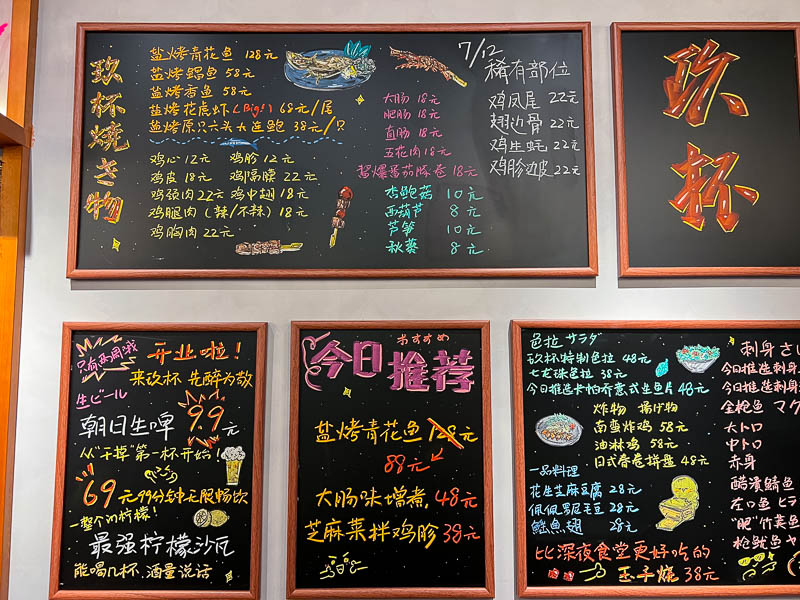 玖杯燒き物
盐烤青花鱼 128元
盐烤鲳鱼 58元
盐烤香鱼 58元
盐烤花虎虾(Big!) 68元/尾
盐烤原只六头大连鲍 38元/只
鸡心 12元 鸡胗 12元
鸡皮 18元 鸡隔腰 22元
鸡颈肉 22元 鸡中翅 18元
鸡腿肉(辣/不辣) 18元
鸡胸肉 22元
大肠 18元
肥肠 18元
直肠 18元
五花肉 18元
爆番茄豚卷 18元
杏鲍菇 10元
西葫芦 8元
芦笋 10元
秋葵 8元
7/12
稀有部位
鸡凤尾 22元
翅边骨 22元
鸡生蚝 22元
鸡胗边皮 22元
玖杯
只有两周哦
开业啦!
来玖杯 先醉为敬
生ビール
朝日生啤 9.9元
从“干掉”第一杯开始!
69元99分钟无限畅饮
一整个的柠檬!
最强柠檬沙瓦
能喝几杯,酒量说话
おすすめ
今日推荐
盐烤青花鱼 128元
88元
大肠味增煮 48元
芝麻菜拌鸡胗 38元
色拉 サラダ
玖杯特制色拉 48元
七龙珠色拉 38元
今日推选卡帕乔意式生鱼片 48元
炸物 揚げ物
南蛮炸鸡 58元
油淋鸡 58元
日式春卷拼盘 48元
一品料理
花生芝麻豆腐 28元
佩佩罗尼毛豆 28元
鳐鱼翅 28元
比深夜食堂更好吃的
玉子燒 38元
刺身 さし
今日推选刺身
今日推选刺身
金枪鱼 マグ
大トロ
中トロ
赤身
醋渍鲭鱼
左口鱼 ヒラ
“肥”竹荚鱼
枪鱿鱼 ヤ